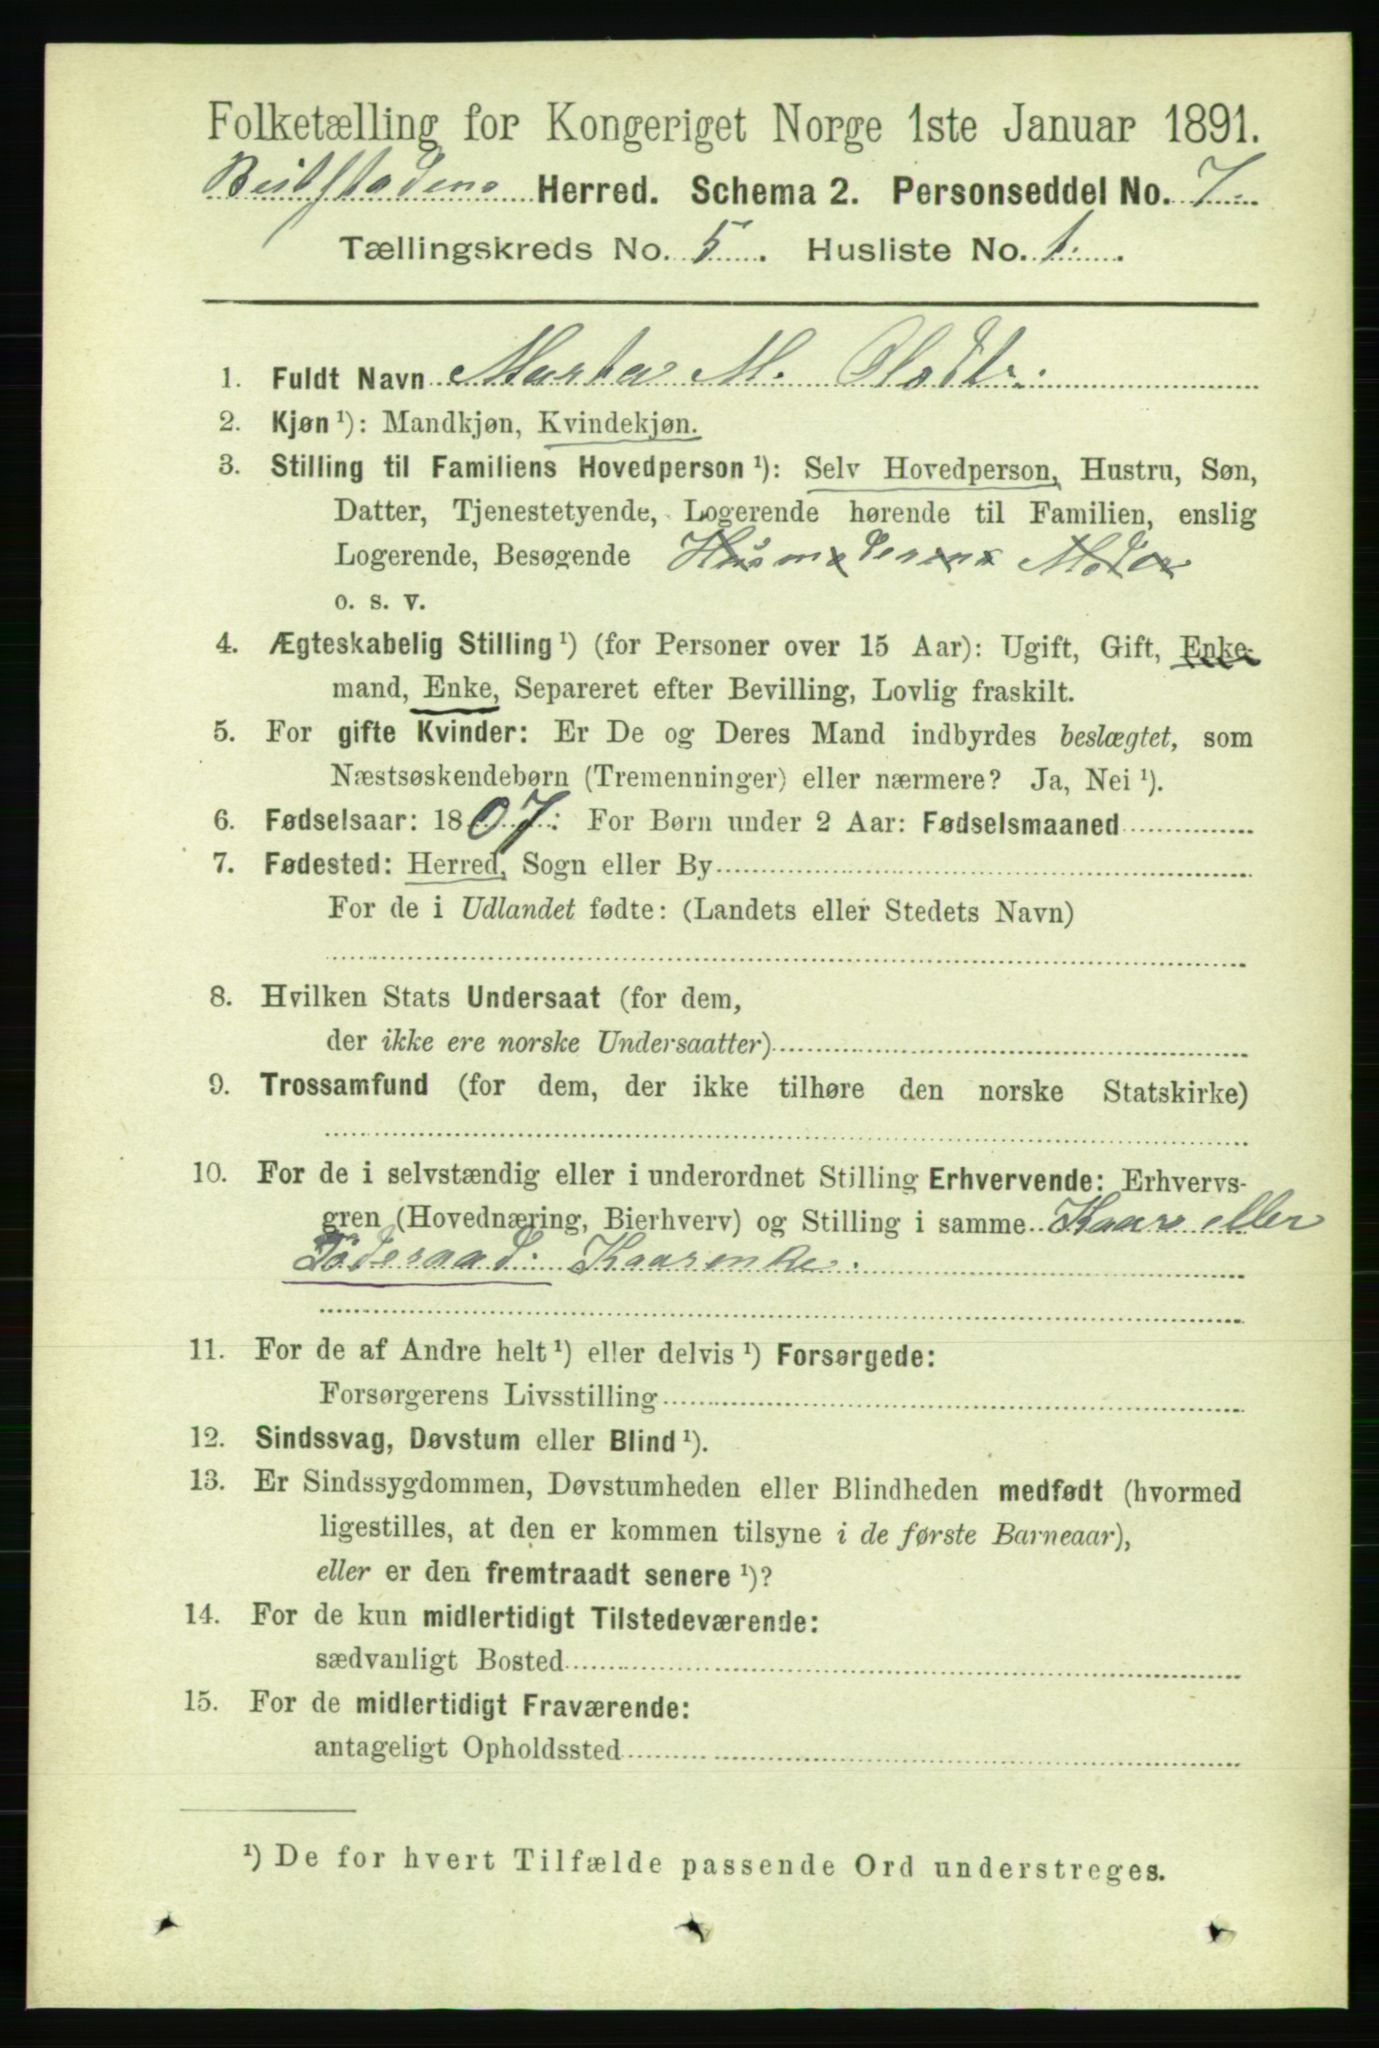 Folketælling for Kongeriget Norge 1ste Januar 1891.
Beitstadens Herred. Schema 2. Personseddel No. 7
Tællingskreds No. 5. Husliste No. 1.
1. Fuldt Navn Marta M. Olsdtr.
2. Kjøn ¹): Mandkjøn, Kvindekjøn.
3. Stilling til Familiens Hovedperson ¹): Selv Hovedperson, Hustru, Søn,
Datter, Tjenestetyende, Logerende hørende til Familien, enslig
Logerende, Besøgende Husmoderens Moder
o. s. v.
4. Ægteskabelig Stilling ¹) (for Personer over 15 Aar): Ugift, Gift, Enke-
mand, Enke, Separeret efter Bevilling, Lovlig fraskilt.
5. For gifte Kvinder: Er De og Deres Mand indbyrdes beslægtet, som
Næstsøskendebørn (Tremenninger) eller nærmere? Ja, Nei ¹).
6. Fødselsaar: 1807. For Børn under 2 Aar: Fødselsmaaned
7. Fødested: Herred, Sogn eller By
For de i Udlandet fødte: (Landets eller Stedets Navn)
8. Hvilken Stats Undersaat (for dem,
der ikke ere norske Undersaatter)
9. Trossamfund (for dem, der ikke tilhøre den norske Statskirke)
10. For de i selvstændig eller i underordnet Stilling Erhvervende: Erhvervs-
gren (Hovednæring, Bierhverv) og Stilling i samme Kaar eller
Föderaad: Kaarenke.
11. For de af Andre helt ¹) eller delvis ¹) Forsørgede:
Forsørgerens Livsstilling
12. Sindssvag, Døvstum eller Blind ¹).
13. Er Sindssygdommen, Døvstumheden eller Blindheden medfødt (hvormed
ligestilles, at den er kommen tilsyne i de første Barneaar),
eller er den fremtraadt senere ¹)?
14. For de kun midlertidigt Tilstedeværende:
sædvanligt Bosted
15. For de midlertidigt Fraværende:
antageligt Opholdssted
¹) De for hvert Tilfælde passende Ord understreges.